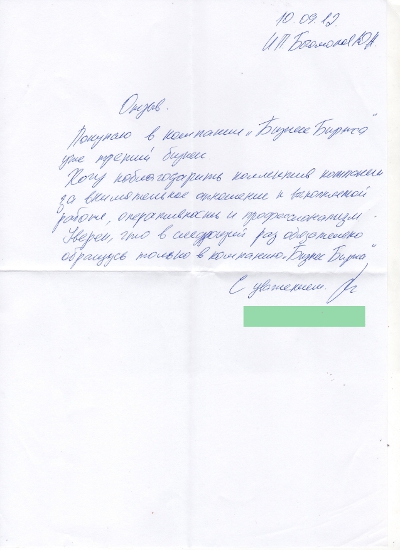 10.09.12
ИП Богомолов Ю.А
Отзыв.
Покупаю в компании „Бизнес Биржа"
уже третий бизнес
Хочу поблагодарить коллектив компании
за внимательное отношение к выполняемой
работе, оперативность и профессионализм.
Уверен, что в следующий раз обязательно
обращусь только в компанию „Бизнес Биржа"
С уважением.